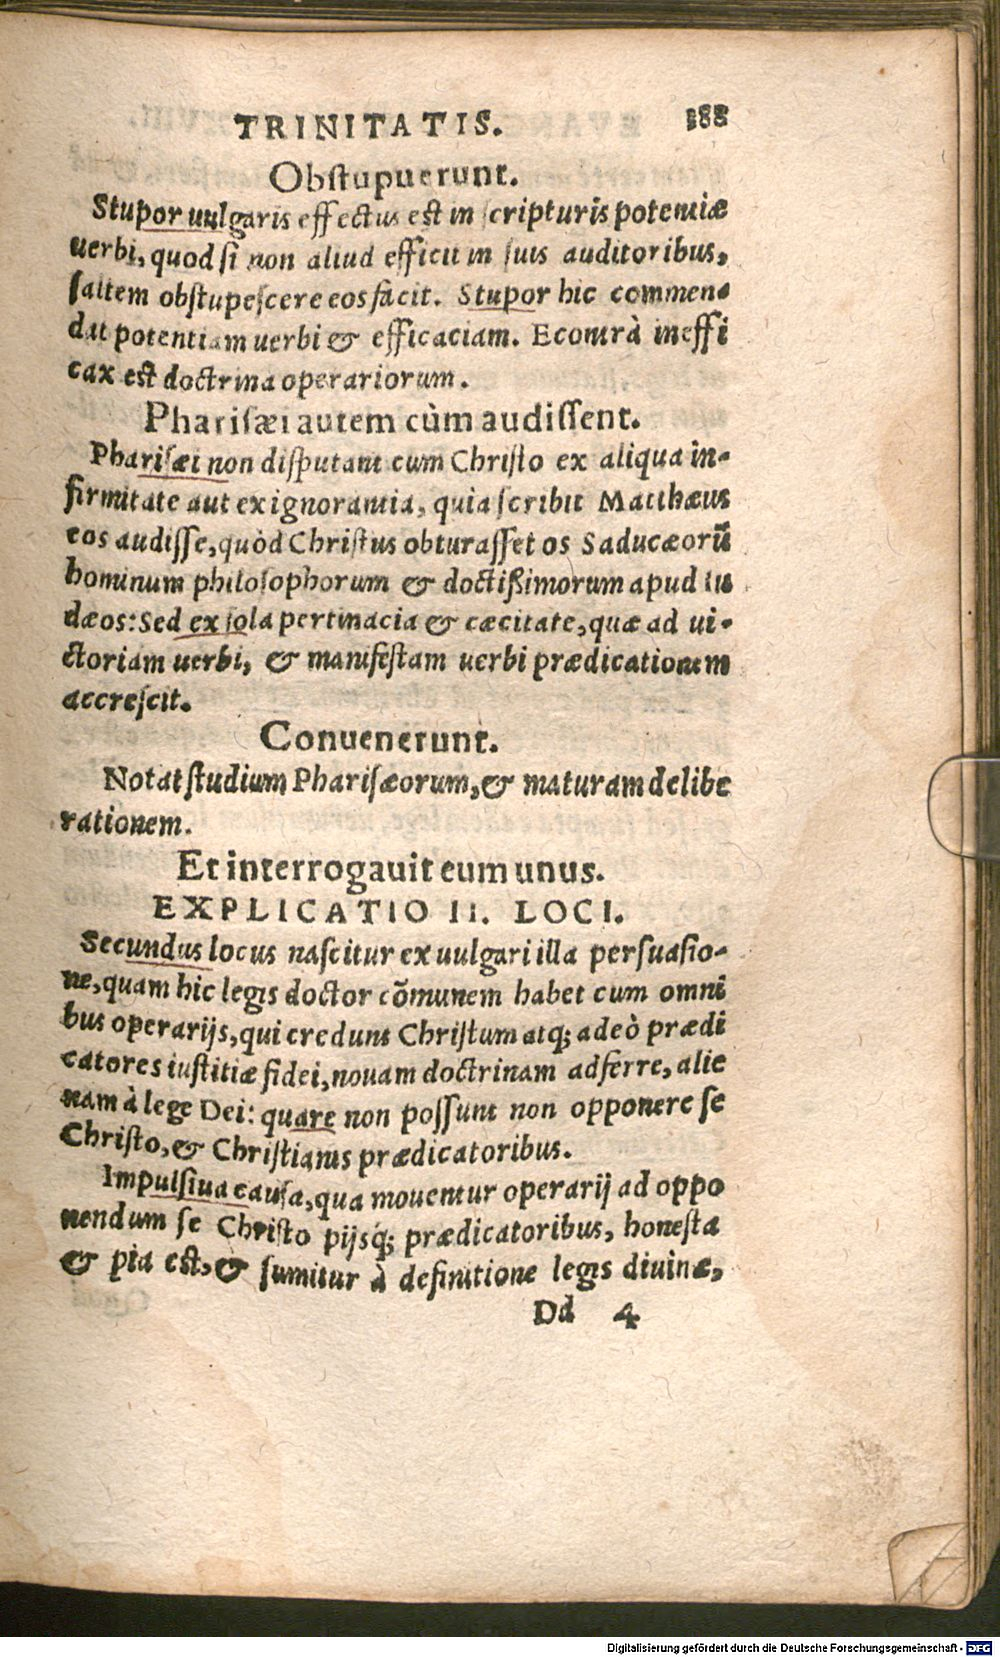 TRINITATIS. 188
Obstupuerunt.
Stupor uulgaris effectus est in scripturis potentiæ
uerbi, quod si non aliud efficit in suis auditoribus,
saltem obstupescere eos facit. Stupor hic commen-
dat potentiam uerbi & efficaciam. Econtrà ineffi
cax est doctrina operariorum.
Pharisæi autem cùm audissent.
Pharisæi non disputant cum Christo ex aliqua in-
firmitate aut ex ignorantia, quia scribit Matthæus
eos audisse, quòd Christus obturasset os Saducæorū
hominum philosophorum & doctißimorum apud Iu
dæos: Sed ex sola pertinacia & cæcitate, quæ ad ui-
ctoriam uerbi, & manifestam uerbi prædicationem
accrescit.
Conuenerunt.
Notat studium Pharisæorum, & maturam delibe
rationem.
Et interrogauit eum unus.
EXPLICATIO II. LOCI.
Secundus locus nascitur ex uulgari illa persuasio-
ne, quam hic legis doctor cōmunem habet cum omni
bus operarijs, qui credunt Christum atq; adeò prædi
catores iustitiæ fidei, nouam doctrinam adferre, alie
nam à lege Dei: quare non possunt non opponere se
Christo, & Christianis prædicatoribus.
Impulsiua causa, qua mouentur operarij ad oppo
nendum se Christo pijsq́; prædicatoribus, honesta
& pia est, & sumitur à definitione legis diuinæ,
Dd 4
Digitalisierung gefördert durch die Deutsche Forschungsgemeinschaft - DFG